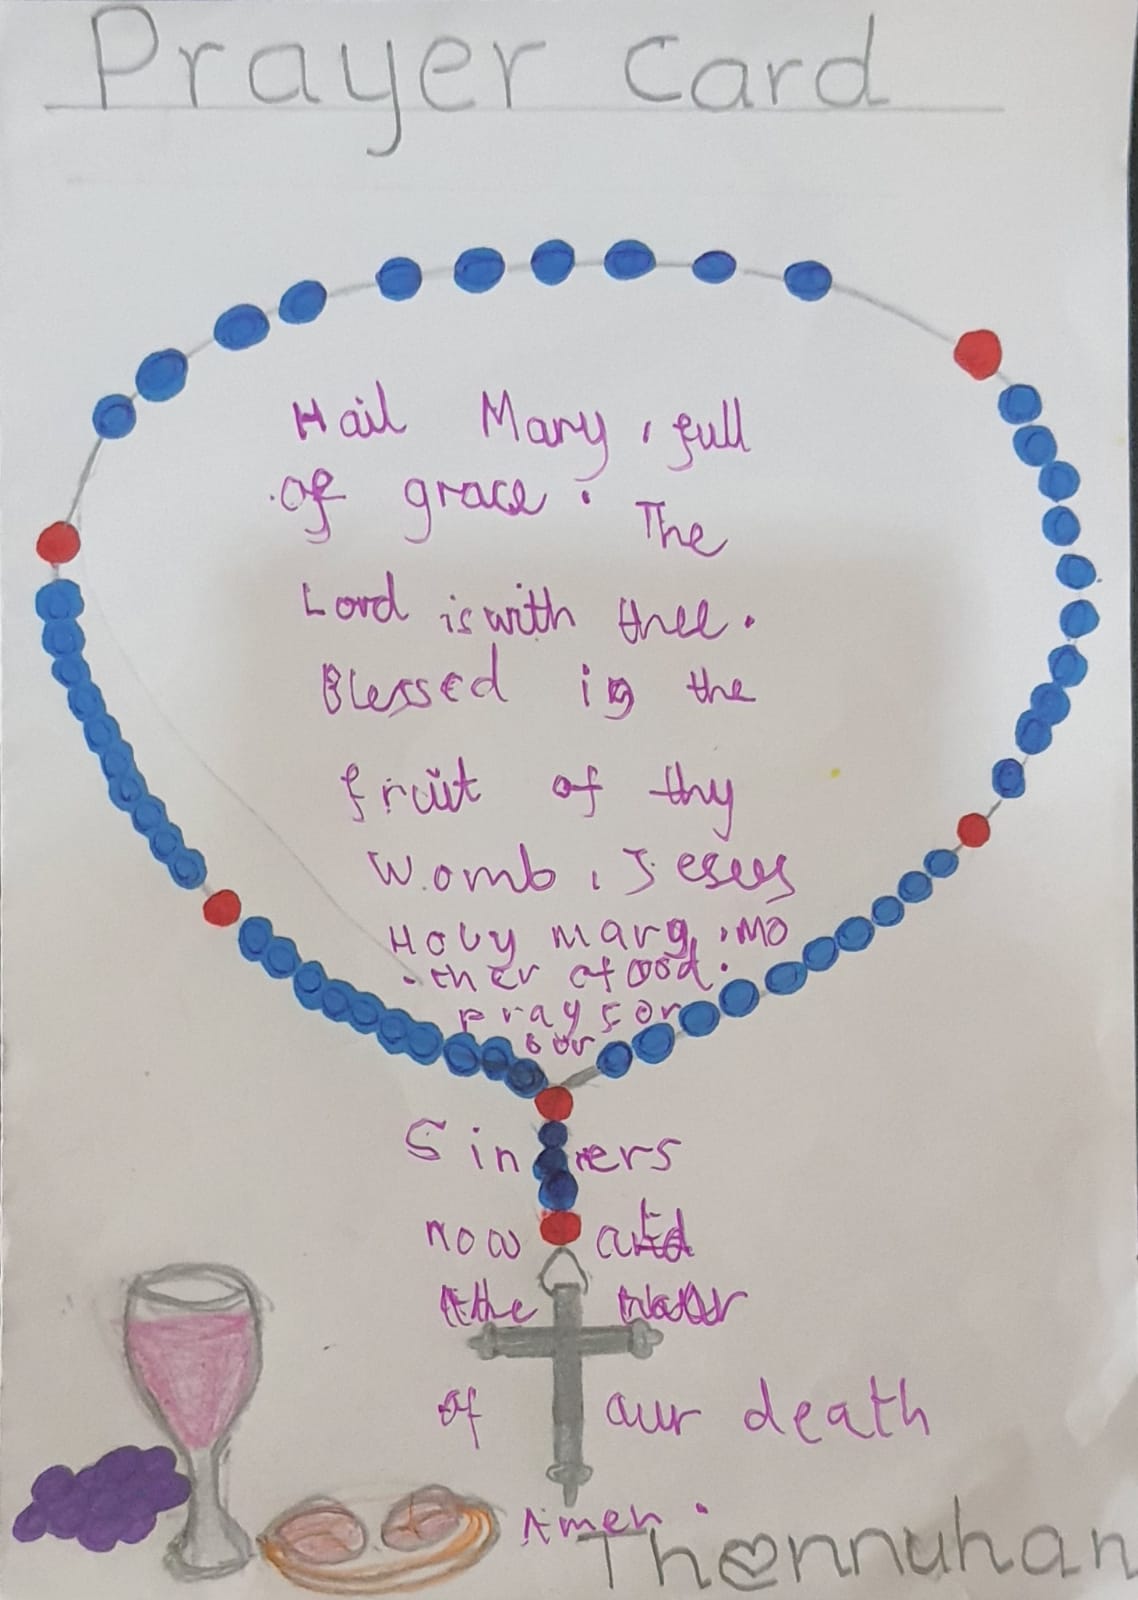 Prayer Card
Hail Mary, full
of grace. The
Lord is with thee.
Blessed is the
fruit of thy
Womb, Jesus
Holy mary, mo
ther of God.
pray for
our
Sinners
now and
the
of our death
Amen.
Thonnuhan